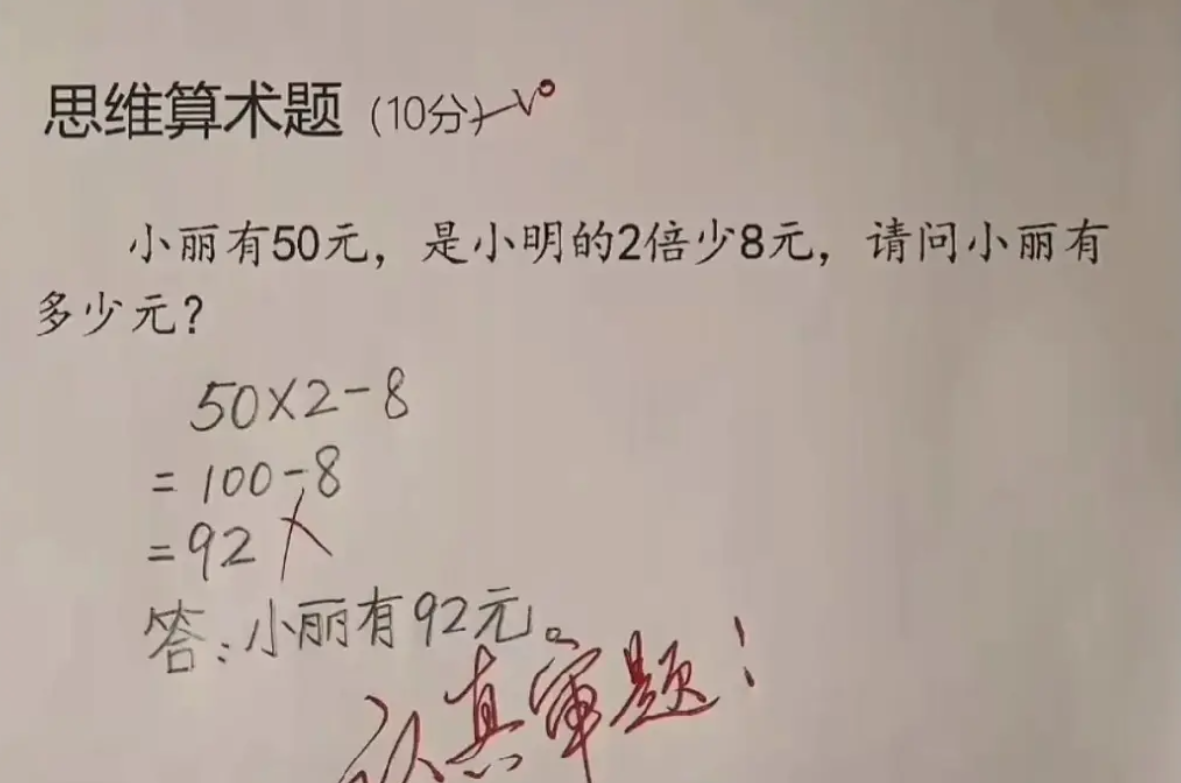 思维算术题（10分）
小丽有50元，是小明的2倍少8元，请问小丽有
多少元？
50×2-8
=100-8
=92
答：小丽有92元。
认真审题！